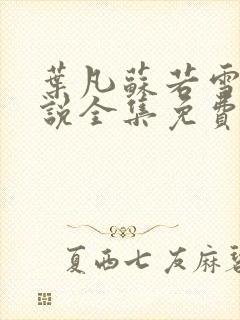 葉凡蘇若雪
說全集免費
夏西七友麻